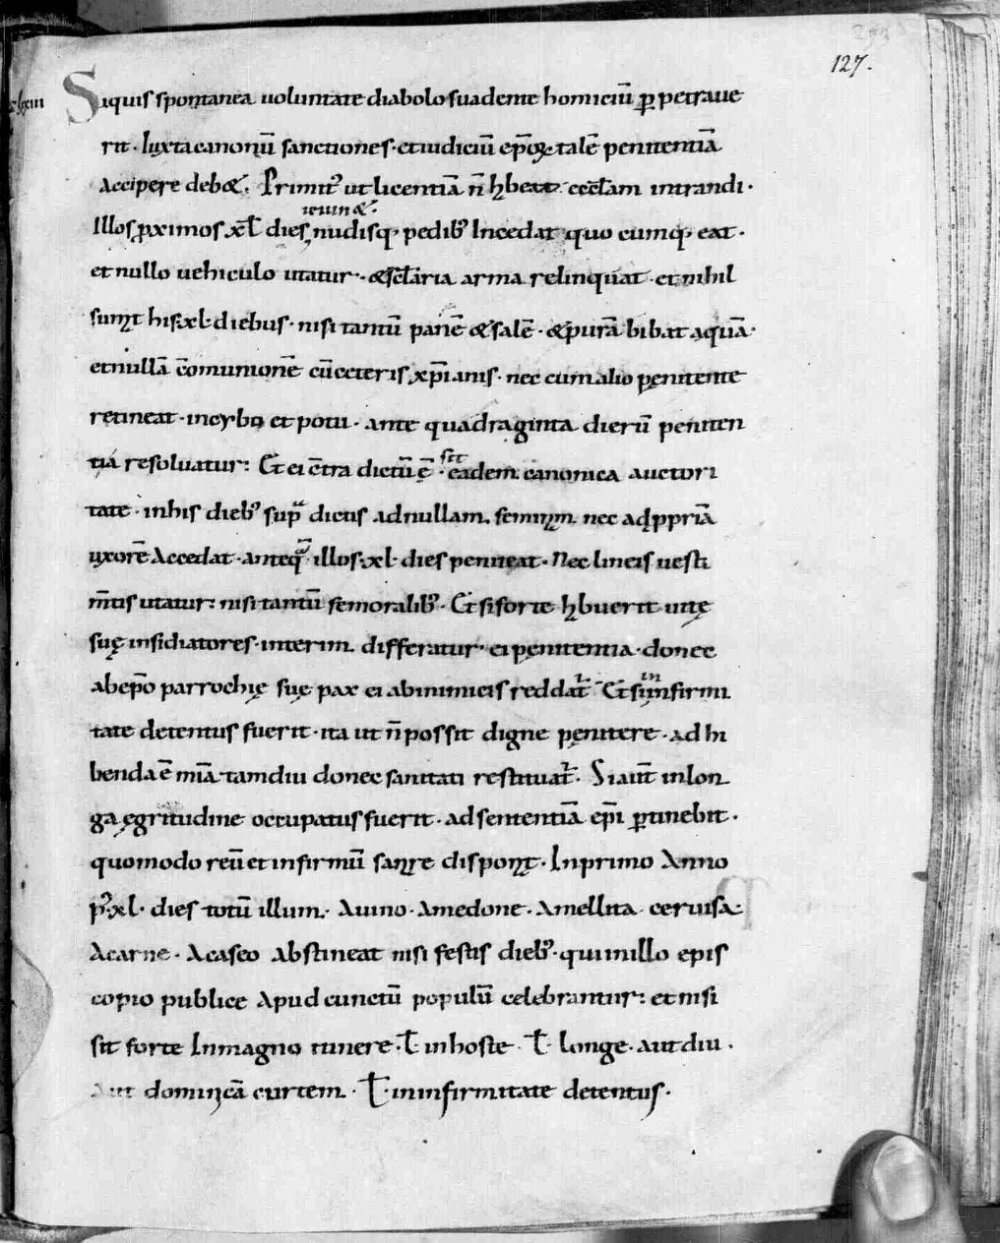 127.
Siquis spontanea uoluntate diabolo suadente homiciū ꝑpetraue
rit· Iuxta canonū sanctiones· et iudiciū ep̄oꝝ talē penitentiā
Accipere deb&· Primit᷒ ut licentiā n̄ hbeat ęccłam intrandi·
ieiun&·
Illos ꝓximos xl̄ dies, nudisq; pedib᷒ Incedat quo cumq; eat·
et nullo uehiculo utatur· &sclaria arma relinquat· et nihil
sumat his xl· diebus· nisi tantū panē & salē· & purā bibat aquā·
et nullā cōmunionē cū ceteris xp̄ianis· nec cum alio penitente
retineat· in cybo et potu· ante quadraginta dierū peniten
tiā resoluatur: Et ei c̄tra dictū ē· sit eadem canonica auctori
tate· in his dieb᷒ sup͛ dictis ad nullam feminam nec ad ꝓpriā
uxorē Accedat· anteq̄ illos xl· dies peniteat· Nec lineis uesti
m̄tis utatur: nisi tantū femoralib᷒· Et si forte hbuerit uitę
suę insidiatores· interim differatur· ei penitentia· donec
ab ep̄o parrochię suę pax ei ab inimicis reddat᷑· Et si in infirmi
tate detentus fuerit· ita ut n̄ possit digne pęnitere· adhi
benda ē mīa tamdiu donec sanitati restituat᷑· Si aut̄ in lon
ga ęgritudine occupatus fuerit· ad sententiā ep̄i ꝑtinebit·
quomodo reū et infirmū sanare disponat· In primo Anno
p᷒ xl· dies totū illum· Auino· Amedone· Amellita ceruisa·
Acarne· Acaseo abstineat nisi festis dieb᷒· qui in illo epis
copio publice Apud cunctū populū celebrantur: et nisi
sit forte In magno itinere· ł in hoste· ł· longe· aut diu·
Aut dominicā curtem· ł· in infirmitate detentus·